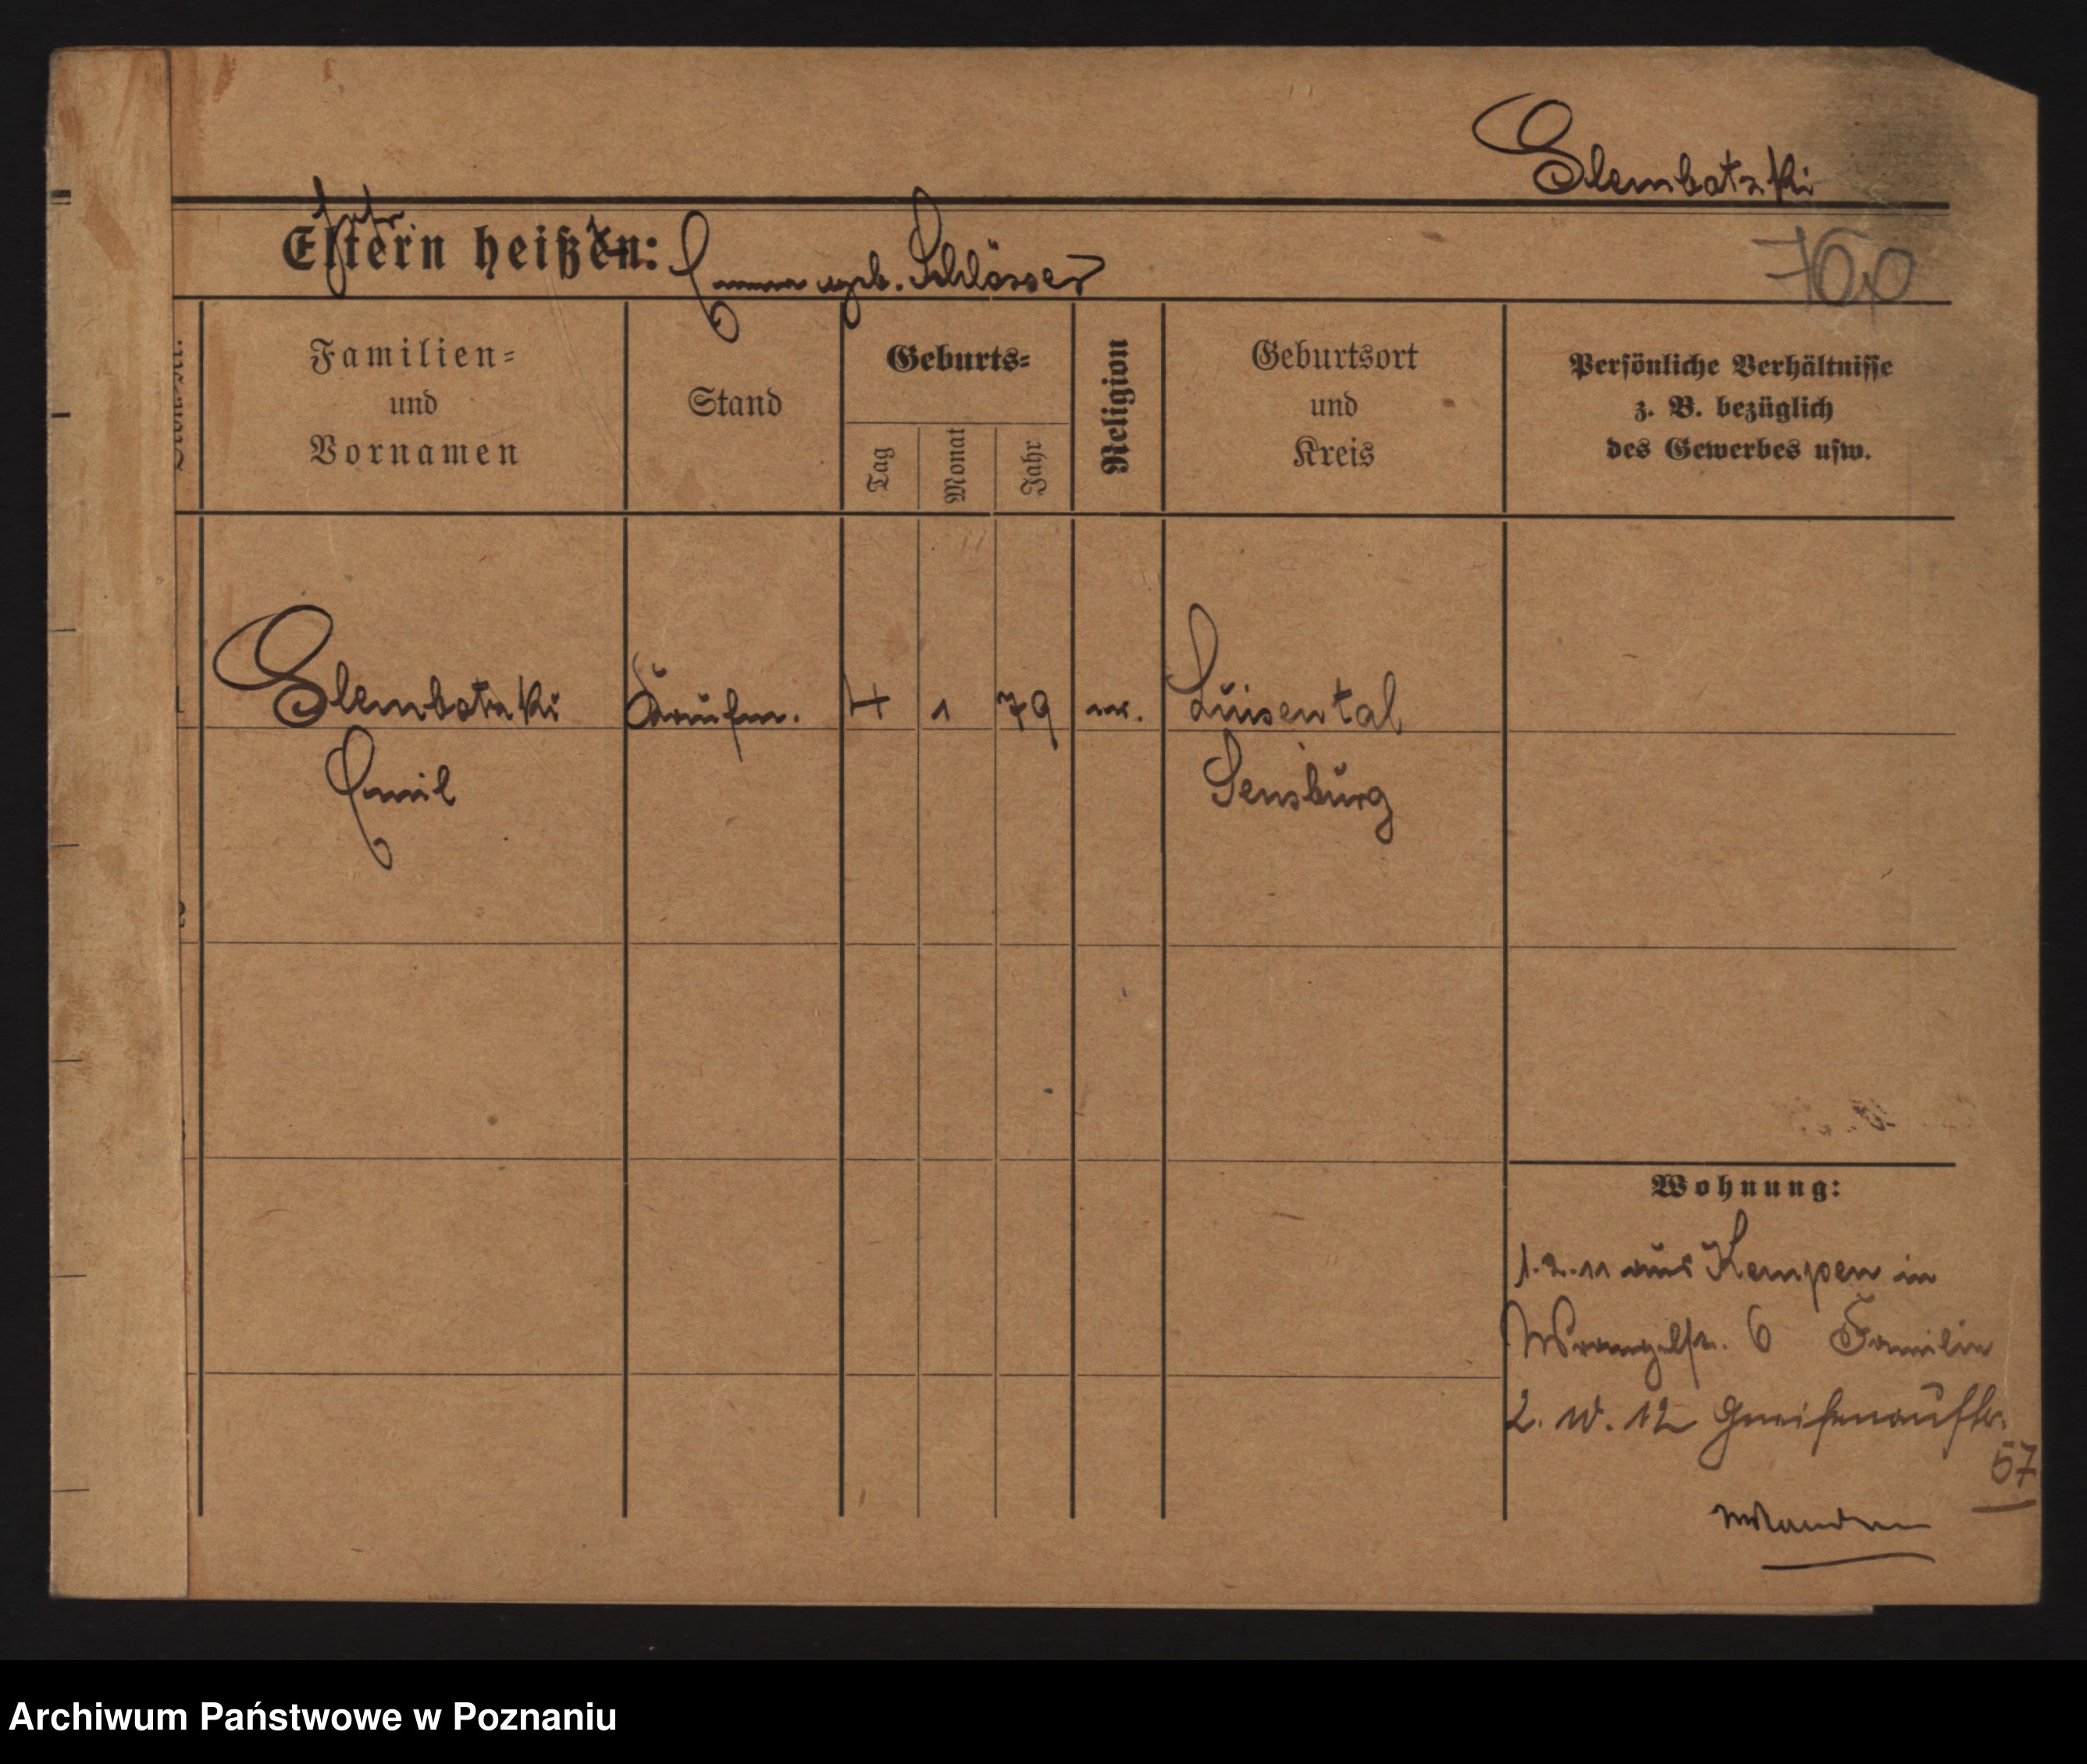 Slembotzki
Eltern heißen: Emma geb. Schlösser
760
Familien-
und
Vornamen
Stand
Geburts-
Tag
Monat
Jahr
Religion
Geburtsort
und
Kreis
Persönliche Verhältnisse
z. B. bezüglich
des Gewerbes usw.
Slembotzki Kaufm. 4 1 79 Luisental
Emil Sensburg
Wohnung:
1.2.11 aus Kempen in
Wrangelstr. 6 Familie
2. W. 12 Gneisenaustr.
57
Archiwum Państwowe w Poznaniu